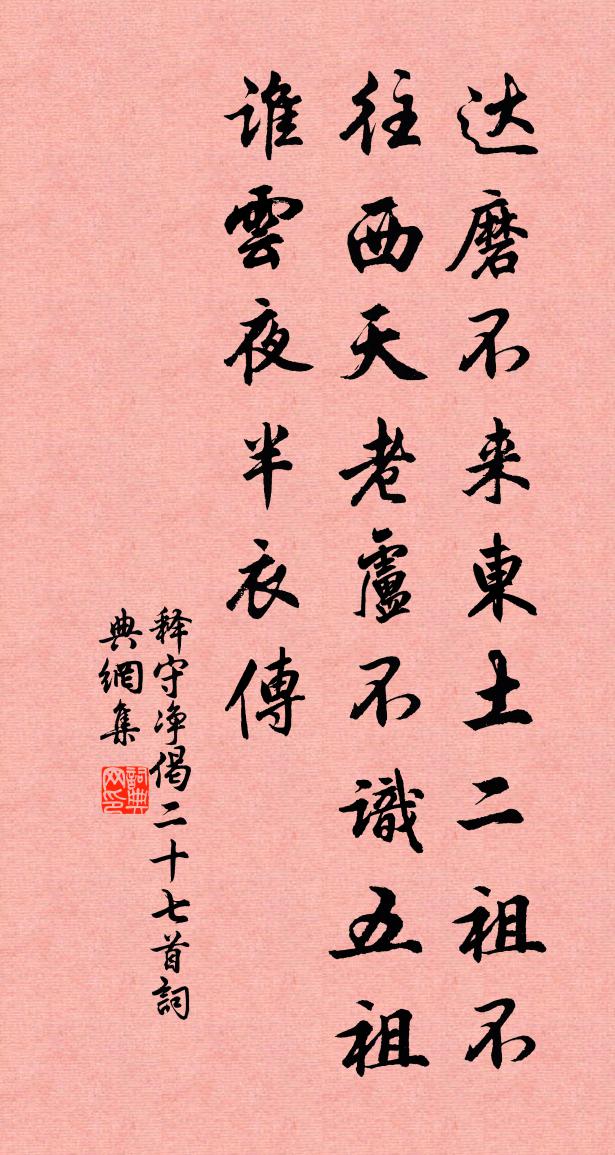 达磨不来東土二祖不
往西天老盧不識五祖
谁雲夜半衣傳
释守净偈二十七首詞
典網集
詞典
网印